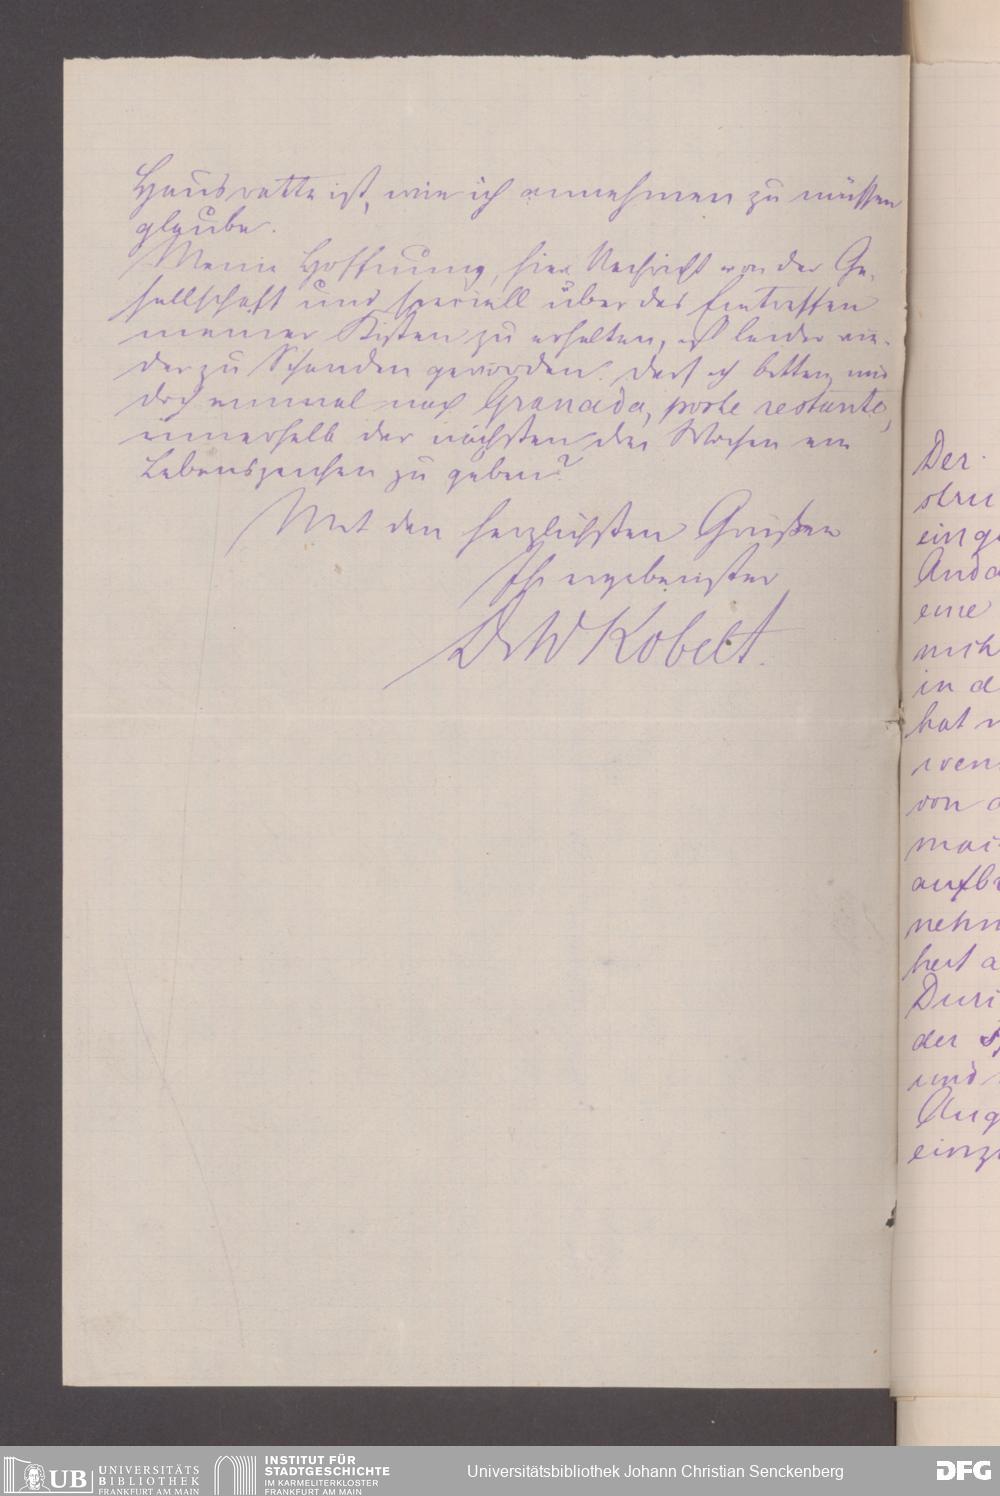 Hausratte ist, wie ich annehmen zu müssen
glaube.
Meine Hoffnung, hier Nachricht von der Ge-
sellschaft und speciell über das Eintreffen
meiner Kisten zu erhalten, ist leider wie-
der zu Schanden geworden. Darf ich bitten, mir
doch einmal nach Granada, poste restante,
innerhalb der nächsten drei Wochen ein
Lebenszeichen zu geben?
Mit den herzlichsten Grüßen
Ihr ergebenster
Dr W Kobelt.
Der
stru
ein ge
Anda
eine
nich
in d
hat
wen
von
mai
aufbr
nehm
heit a
Duri
der
und
Aug
einz
UB
UNIVERSITÄTS
BIBLIOTHEK
FRANKFURT AM MAIN
INSTITUT FÜR
STADTGESCHICHTE
IM KARMELITERKLOSTER
FRANKFURT AM MAIN
Universitätsbibliothek Johann Christian Senckenberg
DFG